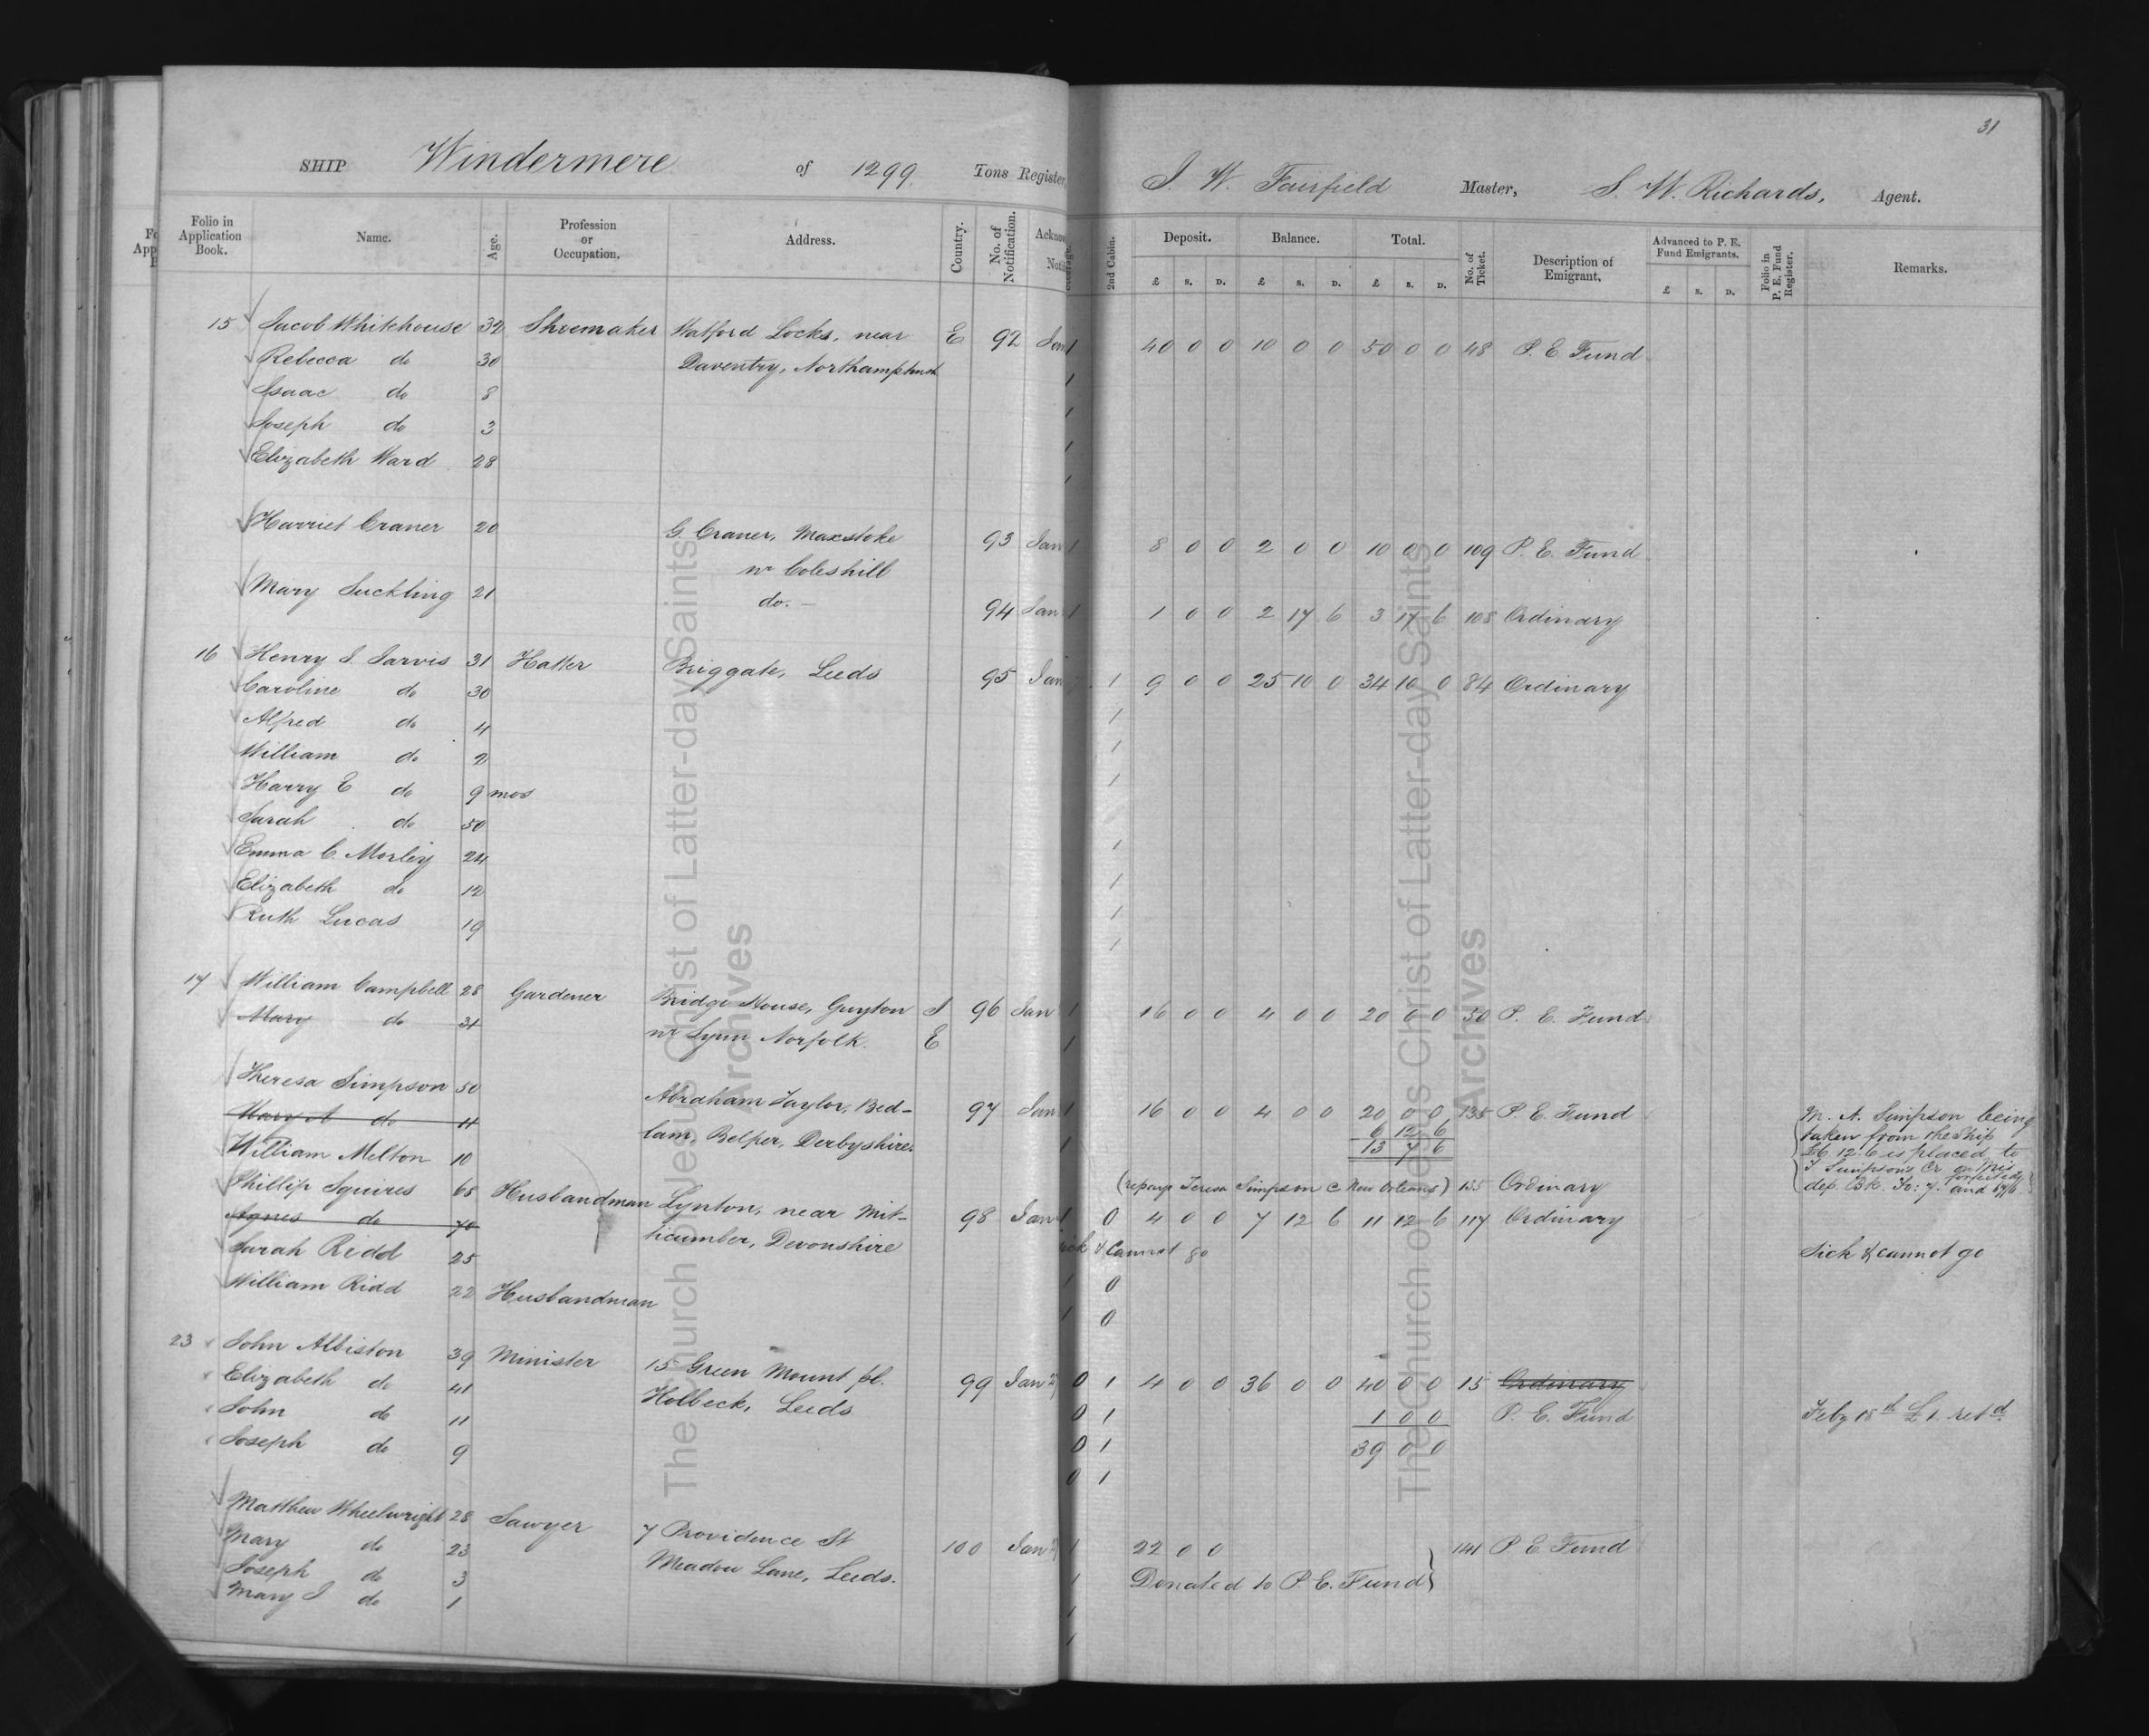 31
SHIP Windermere of 1299 Tons Register, J. W. Fairfield Master, S. W. Richards, Agent.
Folio in Application Book. Name. Age. Profession or Occupation. Address. Country. No. of Notification. Acknow Noti
2nd Cabin. Deposit. Balance. Total. No. of Ticket. Description of Emigrant. Advanced to P. E. Fund Emigrants. Folio in P. E. Fund Register. Remarks.
£ S. D. £ S. D. £ S. D. £ S. D.
15 Jacob Whitehouse 32 Shoemaker Watford Locks, near E 92 Jan 1 40 0 0 10 0 0 50 0 0 48 P. E. Fund
Rebecca do 30 Daventry, Northamptonsh 1
Isaac do 8 1
Joseph do 3 1
Elizabeth Ward 28 1
Harriet Craner 20 G. Craner, Maxstoke 93 Jan 1 8 0 0 2 0 0 10 0 0 109 P. E. Fund
nr Coleshill
Mary Suckling 21 do. — 94 Jan 1 1 0 0 2 17 6 3 17 6 108 Ordinary
16 Henry J. Jarvis 31 Hatter Briggate, Leeds 95 Jan 1 9 0 0 25 10 0 34 10 0 84 Ordinary
Caroline do 30 1
Alfred do 4 1
William do 2 1
Harry E do 9 mos
Sarah do 50 1
Emma C. Morley 24 1
Elizabeth do 12 1
Ruth Lucas 19 1
17 William Campbell 28 Gardener Bridge House, Guyton S 96 Jan 1 16 0 0 4 0 0 20 0 0 50 P. E. Fund
Mary do 31 nr Lynn Norfolk. E 1
Theresa Simpson 50 Abraham Taylor, Bed- 97 Jan 1 16 0 0 4 0 0 20 0 0 135 P. E. Fund M. A. Simpson being
Mary A do 11 lam, Belper, Derbyshire. 1 6 12 6 taken from the Ship
William Melton 10 13 7 6 £6.12.6 is placed to
T Simpson's Cr on this
dep. Bk. Fo: 7. and
Phillip Squires 68 Husbandman Lynton, near Mit- 98 Jan 1 0 4 0 0 7 12 6 11 12 6 117 Ordinary
(Teresa Simpson New Orleans) 135 Ordinary
Agnes do 70 ticumber, Devonshire Sick & Cannot go Sick & cannot go
Sarah Ridd 25 1 0
William Ridd 22 Husbandman 1 0
23 John Albiston 39 Minister 15 Green Mount pl. 99 Jan 27 0 1 4 0 0 36 0 0 40 0 0 15 Ordinary
Elizabeth do 41 Holbeck, Leeds 0 1 1 0 0 P. E. Fund Feby 18th £1. retd.
John do 11 0 1 39 0 0
Joseph do 9 0 1
Matthew Wheelwright 28 Sawyer 7 Providence St 100 Jan 1 22 0 0 141 P E Fund
Mary do 23 Meadow Lane, Leeds. 1 Donated to P. E. Fund
Joseph do 3 1
Mary J do 1 1
The Church of Jesus Christ of Latter-day Saints
Archives
The Church of Jesus Christ of Latter-day Saints
Archives